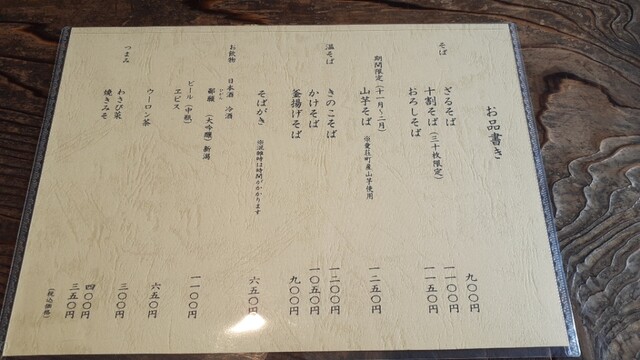 お品書き
そば
ざるそば 九〇〇円
十割そば（三十枚限定） 一一〇〇円
おろしそば 一一五〇円
期間限定（十一月～二月）
山芋そば ※愛荘町産山芋使用 一二五〇円
温そば
きのこそば 一二〇〇円
かけそば 一〇五〇円
釜揚げそば 九〇〇円
そばがき ※混雑時は時間がかかります 六五〇円
お飲物
日本酒 冷酒
（大吟醸）新潟 一一〇〇円
ビール（中瓶）
ヱビス 六五〇円
ウーロン茶 三〇〇円
つまみ
わさび菜 四〇〇円
焼きみそ 三五〇円
（税込価格）